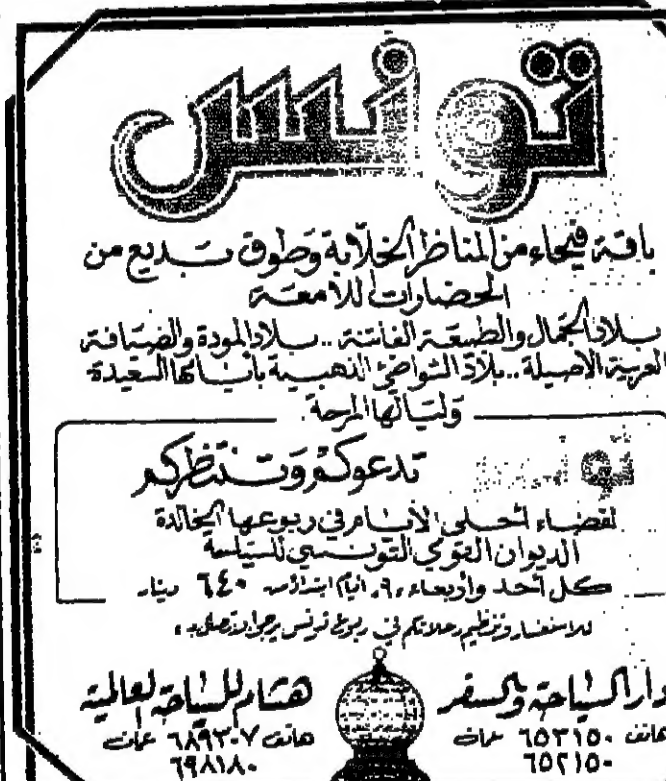 تونس
باقة فيحاء من المناظر الخلابة وطوق بديع من
الحضارات اللامعة
بلاد الجمال والطبيعة الفاتنة .. بلاد المودة والضيافة
العربية الاصيلة .. بلاد الشواطئ الذهبية بأيامها السعيدة
ولياليها المرحة.
تونس تدعوكم وتنتظركم
لقضاء أحلى الأيام في ربوعها الخالدة
الديوان القومي التونسي للسياحة
كل أحد واربعاء، ٩ أيام ابتداء من ٦٤٠ دينار
للاستفسار وتنظيم رحلاتكم في ربوع تونس يرجى الاتصال بـ:
دار السياحة والسفر
هاتف ٦٥٢١٥٠ عمان
٦٥٢١٥٠
هشام للسياحة العالمية
هاتف ٦٨٩٢٠٧ عمان
٦٩٨١٨٠